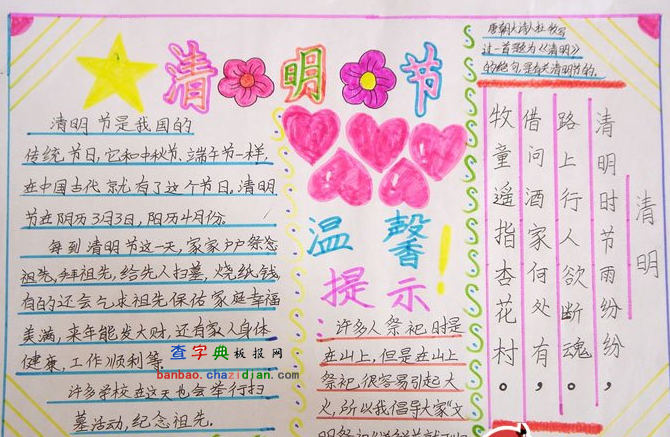 清明节
清明节是我国的
传统节日,它和中秋节、端午节一样,
在中国古代就有了这个节日,清明
节在阴历3月3日,阳历4月份。
每到清明节这一天,家家户户祭念
祖先,拜祖先,给先人扫墓,烧纸钱,
有的还会乞求祖先保佑家庭幸福
美满,来年能发大财,还有家人身体
健康,工作顺利等.
许多学校在这天也会举行扫
墓活动,纪念祖先.
查字典板报网
banbao.chazidian.com
温馨
提示!
许多人祭祀时是
在山上,但是在山上
祭祀,很容易引起大
火,所以我倡导大家“文
唐朝大诗人杜牧写
过一首题为《清明》
的绝句,是有关清明节的.
清明
清明时节雨纷纷,
路上行人欲断魂。
借问酒家何处有,
牧童遥指杏花村。